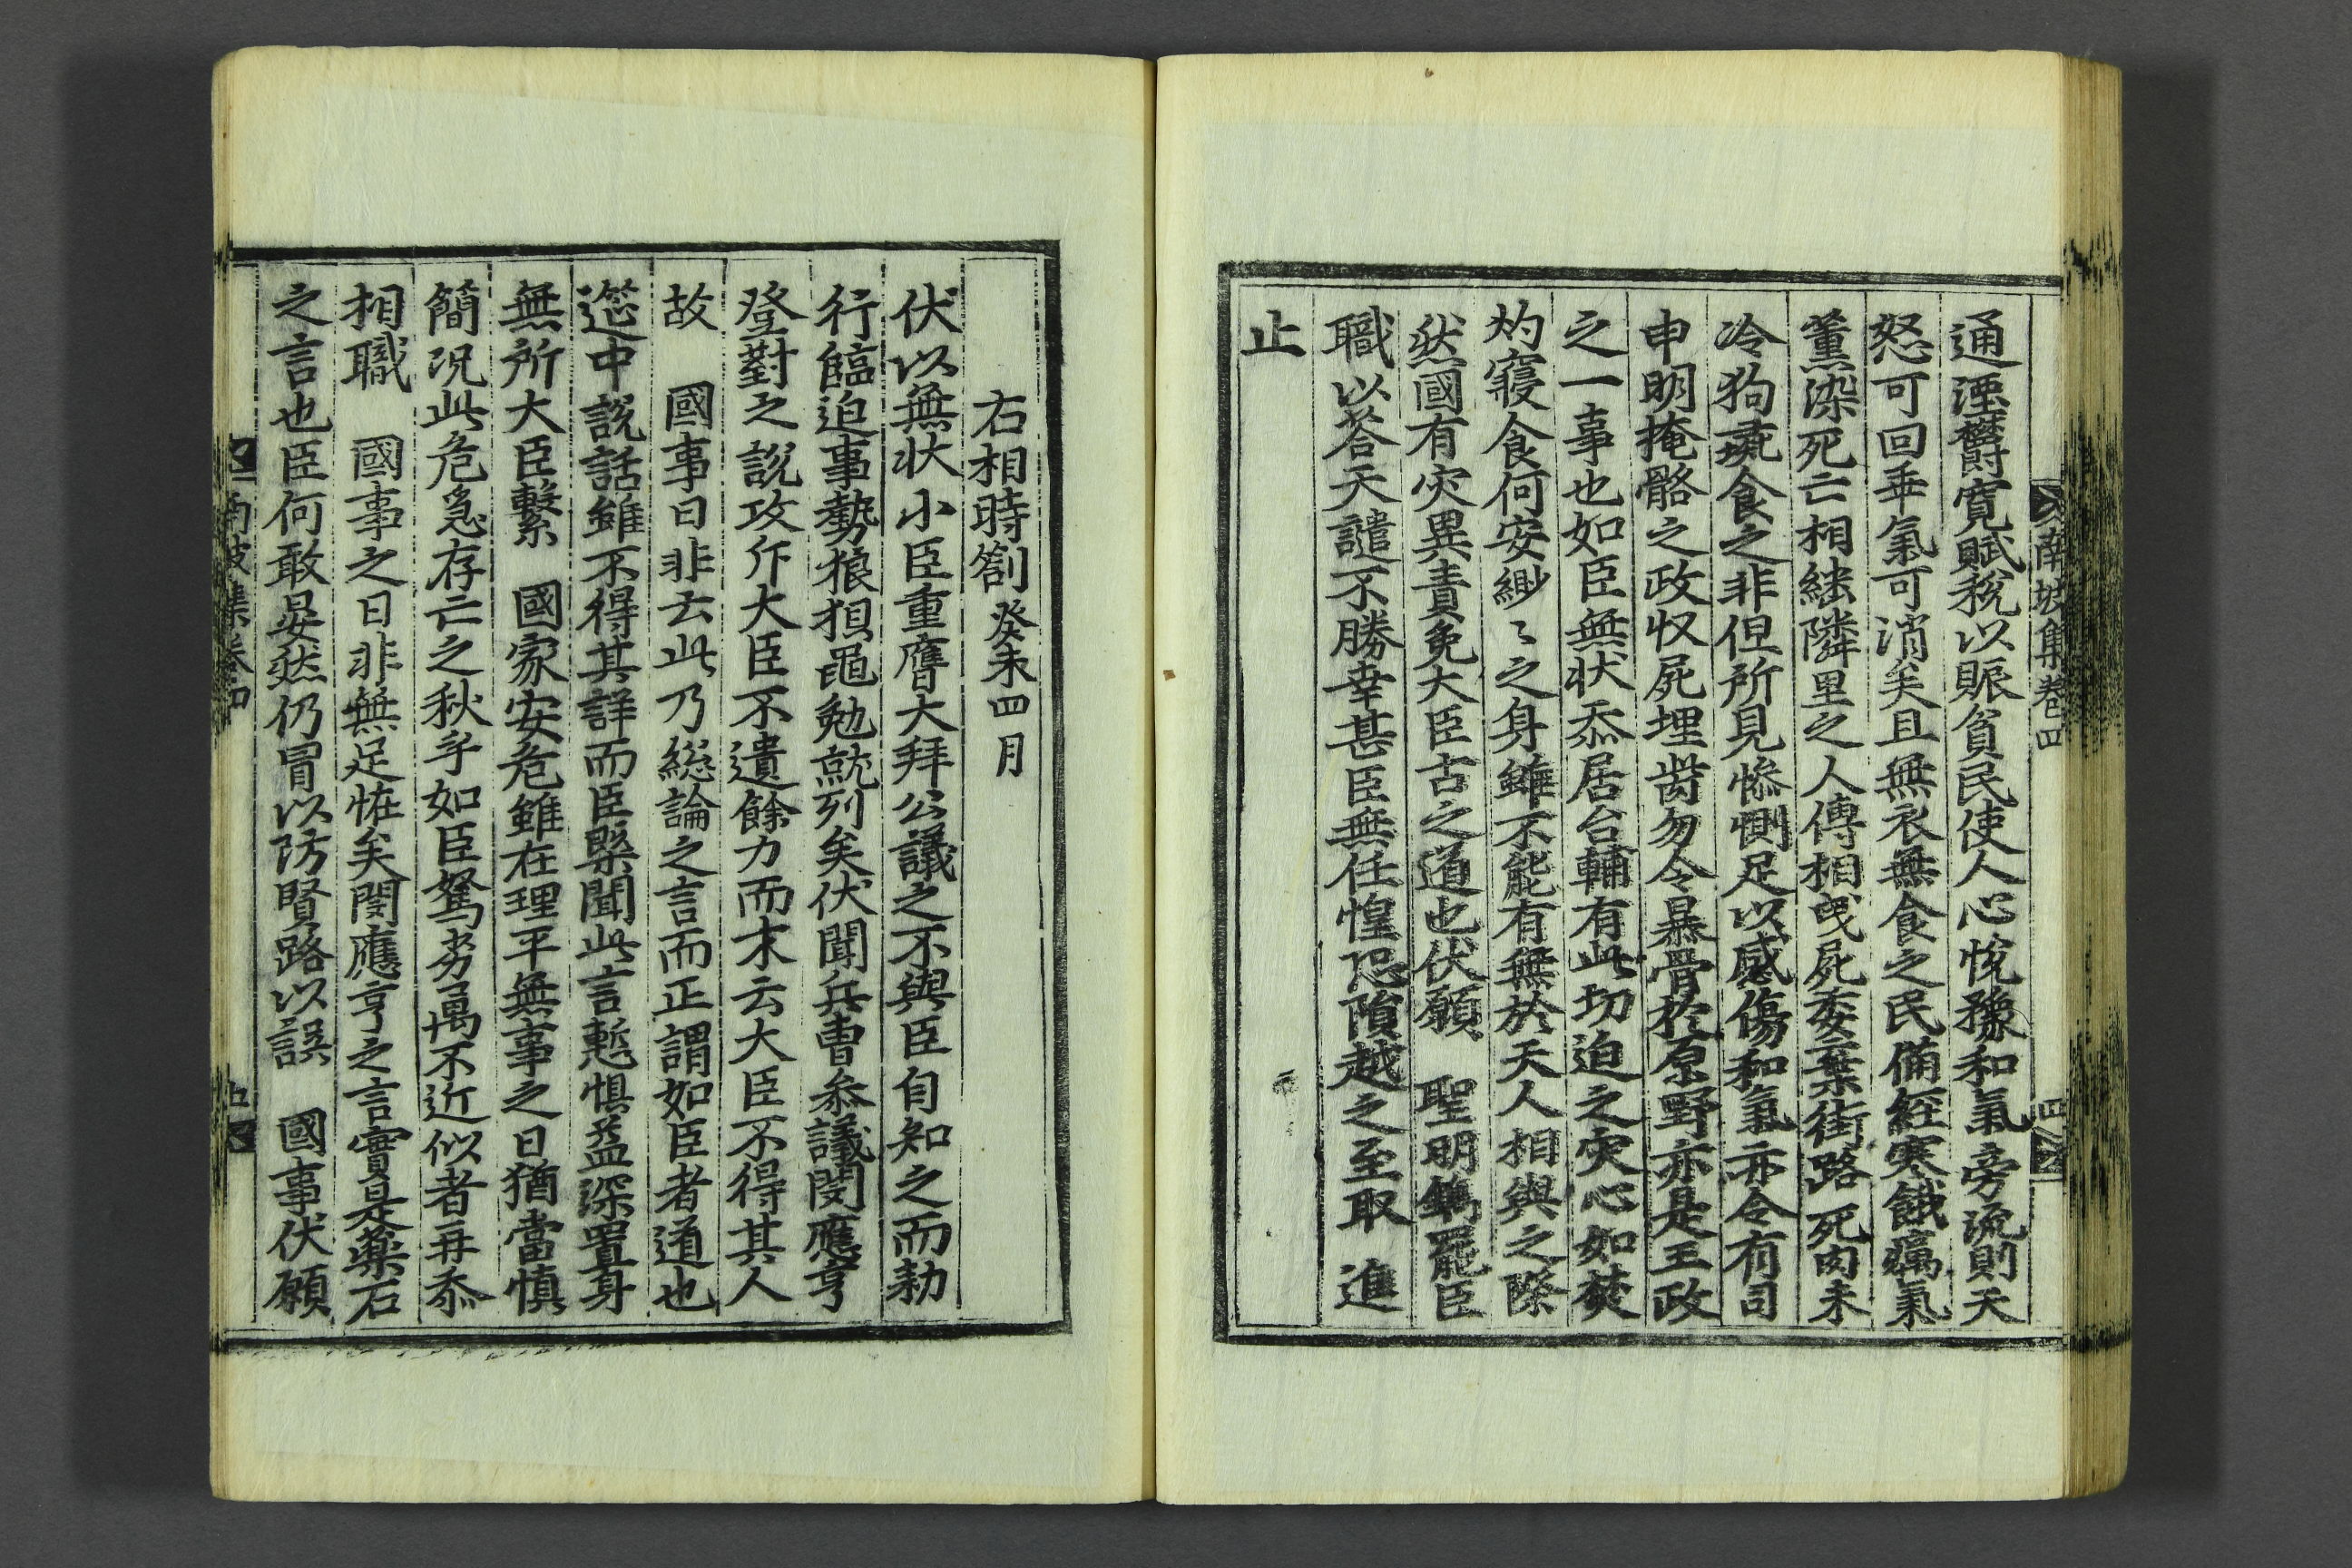 南坡集卷四
四
通湮欝寬賦稅以賑貧民使人心悅豫和氣旁流則天
怒可回乖氣可消矣且無衣無食之民備經寒餓癘氣
薰染死亡相継隣里之人傳相曳屍委棄街路死肉未
冷狗彘食之非但所見慘惻足以感傷和氣亦令有司
申明掩骼之政収屍埋胔勿令暴骨於原野亦是王政
之一事也如臣無状忝居台輔有此切迫之灾心如焚
灼寢食何安緲〻之身雖不能有無於天人相與之際
然國有灾異責免大臣古之道也伏願 聖明鐫罷臣
職以荅天譴不勝幸甚臣無任惶恐隕越之至取 進
止
右相時劄 癸未四月
伏以無状小臣重膺大拜公議之不與臣自知之而勑
行臨迫事勢狼狽黽勉就列矣伏聞兵曹叅議閔應亨
登對之說攻斥大臣不遺餘力而末云大臣不得其人
故 國事日非云此乃総論之言而正謂如臣者道也
筵中説話雖不得其詳而臣槩聞此言慙惧益深置身
無所大臣繫 國家安危雖在理平無事之日猶當慎
簡況此危急存亡之秋乎如臣駑劣萬不近似者再忝
相職 國事之日非無足恠矣閔應亨之言實是藥石
之言也臣何敢晏然仍冒以防賢路以誤 國事伏願